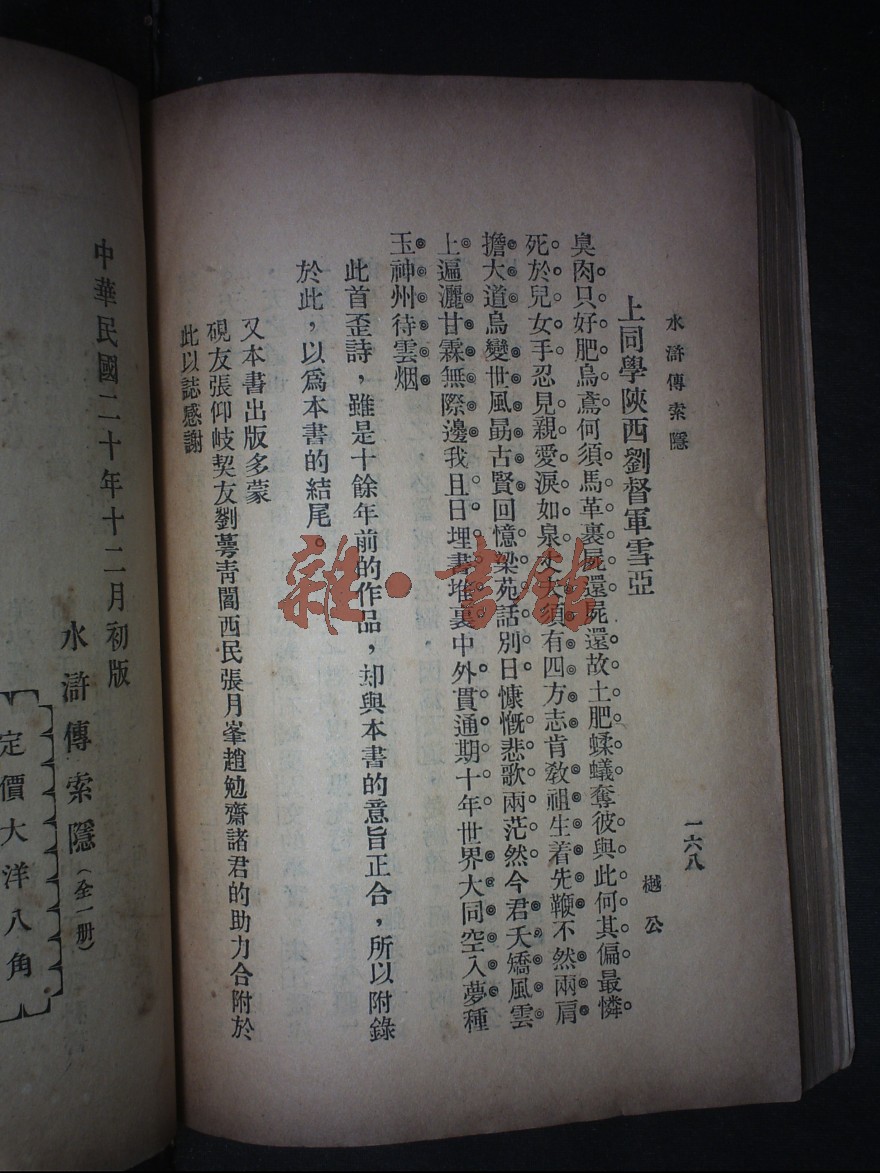 水滸傳索隱
一六八
上同學陝西劉督軍雪亞
樾公
臭肉只好肥烏鳶何須馬革裹屍還屍還故土肥螻蟻奪彼與此何其偏最憐
死於兒女手忍見親愛淚如泉丈夫須有四方志肯教祖生着先鞭不然兩肩
擔大道烏變世風勗古賢回憶梁苑話別日慷慨悲歌兩茫然今君夭矯風雲
上遍灑甘霖無際邊我且日埋書堆裏中外貫通期十年世界大同空入夢種
玉神州待雲烟
此首歪詩，雖是十餘年前的作品，却與本書的意旨正合，所以附錄
於此，以爲本書的結尾。
又本書出版多蒙
硯友張仰岐契友劉蕚靑閻西民張月峯趙勉齋諸君的助力合附於
此以誌感謝
中華民國二十年十二月初版
水滸傳索隱（全一册）
定價大洋八角
雜·書館